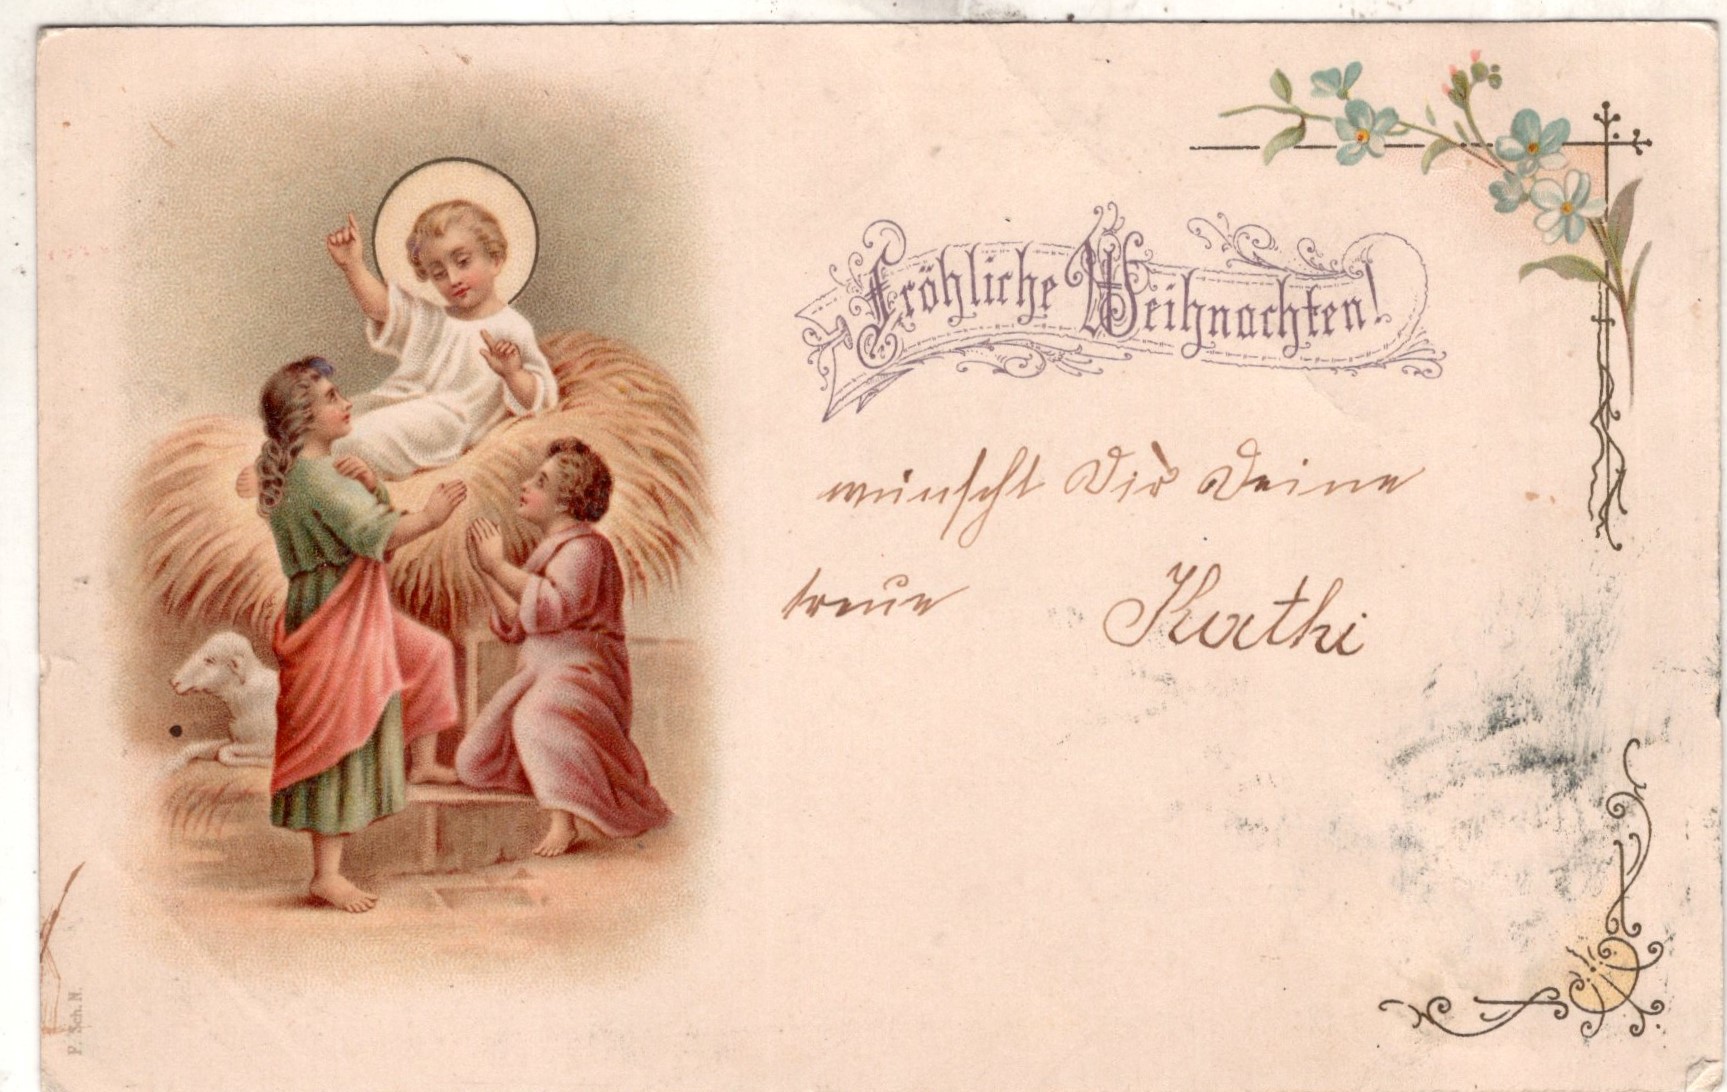 Fröhliche Weihnachten!
wünscht Dir Deine
treue Kathi
P. Sch. N.